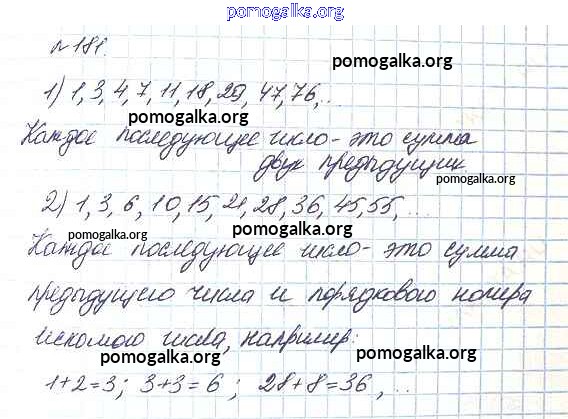 pomogalka.org
№181.
pomogalka.org
1) 1, 3, 4, 7, 11, 18, 29, 47, 76, ...
pomogalka.org
Каждое последующее число - это сумма
двух предыдущих
pomogalka.org
2) 1, 3, 6, 10, 15, 21, 28, 36, 45, 55, ...
pomogalka.org
pomogalka.org
Каждое последующее число - это сумма
предыдущего числа и порядкового номера
искомого числа, например:
pomogalka.org
pomogalka.org
1+2=3; 3+3=6; 28+8=36, ...